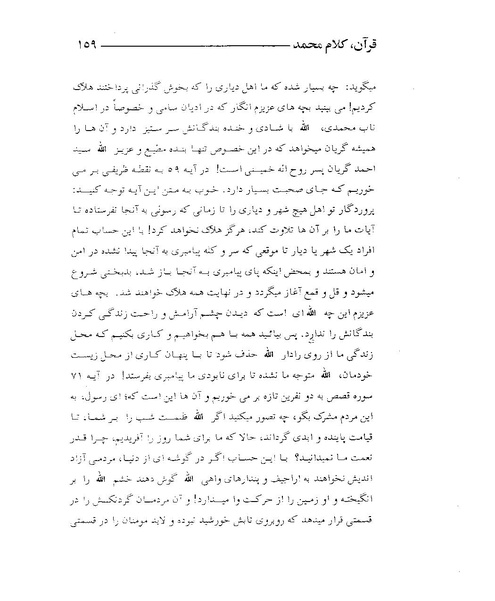 قرآن، کلام محمد ۱۵۹
میگوید: چه بسیار شده که ما اهل دیاری را که بخوش گذرانی پرداختند هلاک
کردیم! می بینید بچه های عزیزم انگار که در ادیان سامی و خصوصاً در اسلام
ناب محمدی، الله با شادی و خنده بندگانش سر ستیز دارد و آن ها را
همیشه گریان میخواهد که در این خصوص تنها بنده مطیع و عزیز الله سید
احمد گریان پسر روح الله خمینی است! در آیه ۵۹ به نقطه ظریفی بر می
خوریم که جای صحبت بسیار دارد. خوب به متن این آیه توجه کنید:
پروردگار تو اهل هیچ شهر و دیاری را تا زمانی که رسولی به آنجا نفرستاده تا
آیات ما را بر آن ها تلاوت کند، هرگز هلاک نخواهد کرد! با این حساب تمام
افراد یک شهر یا دیار تا موقعی که سر و کله پیامبری به آنجا پیدا نشده در امن
و امان هستند و بمحض اینکه پای پیامبری به آنجا باز شد، بدبختی شروع
میشود و قل و قمع آغاز میگردد و در نهایت همه هلاک خواهند شد. بچه های
عزیزم این چه الله ای است که دیدن چشم آرامش و راحت زندگی کردن
بندگانش را ندارد. پس بیائید همه با هم بخواهیم و کاری بکنیم که محل
زندگی ما از روی رادار الله حذف شود تا با پنهان کاری از محل زیست
خودمان، الله متوجه ما نشده تا برای نابودی ما پیامبری بفرستد! در آیه ۷۱
سوره قصص به دو نفرین تازه بر می خوریم و آن ها این است که؛ ای رسول، به
این مردم مشرک بگو، چه تصور میکنید اگر الله ظلمت شب را بر شما، تا
قیامت پاینده و ابدی گرداند، حالا که ما برای شما روز را آفریدیم، چرا قدر
نعمت ما نمیدانید؟ با این حساب اگر در گوشه ای از دنیا، مردمی آزاد
اندیش نخواهند به اراجیف و پندارهای واهی الله گوش دهند خشم الله را بر
انگیخته و او زمین را از حرکت وا میدارد! و آن مردمان گردنکش را در
قسمتی قرار میدهد که روبروی تابش خورشید نبوده و لابد مومنان را در قسمتی